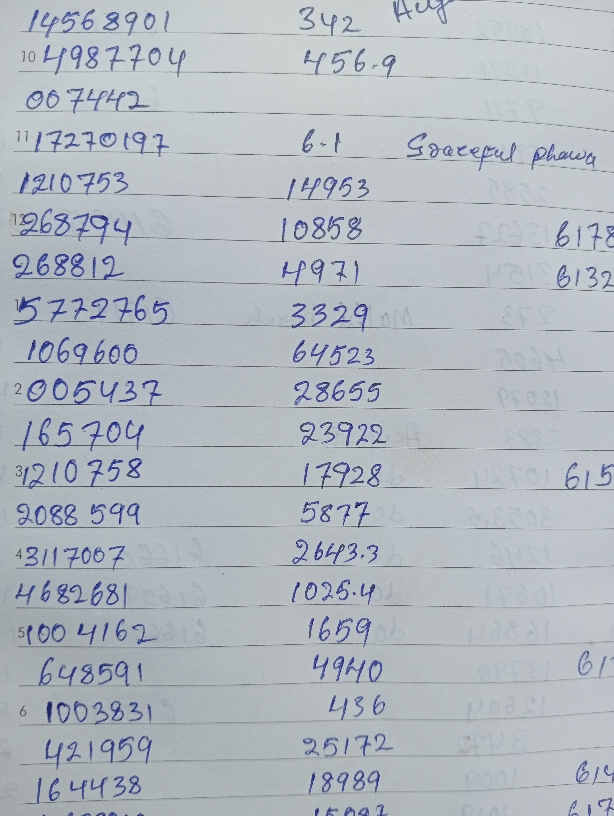 14568901 342
10 4987704 456.9
007442
11 17270197 6.1
1210753 14953
12 268794 10858 6178
268812 4971 6132
5772765 3329
1069600 64523
2 005437 28655
165704 23922
3 1210758 17928 615
2088599 5877
4 3117007 2643.3
4682681 1025.4
5 1004162 1659
648591 4940 61
6 1003831 436
421959 25172
164438 18989 614
617